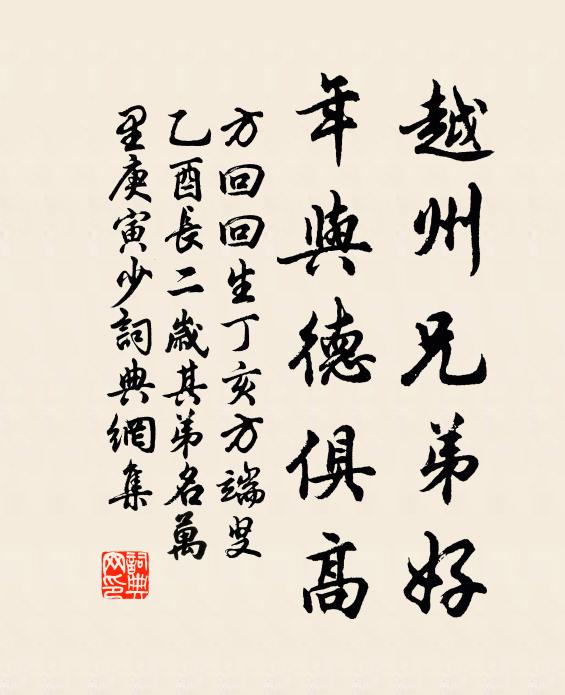 越州兄弟好
年與德俱高
方回回生丁亥方端叟
乙酉長二歲其弟名萬
里庚寅少詞典網集
詞典網印